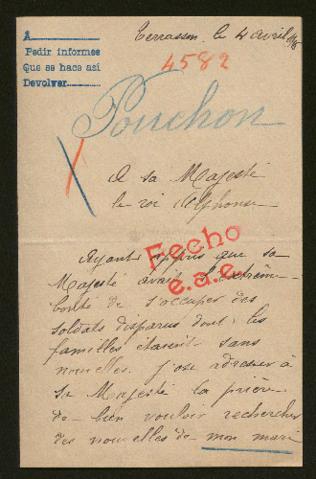 A
Pedir informes
Que se haga así
Devolver
Terrasson, le 4 avril
4582
Pouchon
A sa Majesté
le roi Alphonse
Ayant appris que sa
Majesté avait l'extrême
bonté de s'occuper des
soldats disparus dont les
familles étaient sans
nouvelles. J'ose adresser à
sa Majesté la prière
de bien vouloir rechercher
des nouvelles de mon mari
Fecho
e.a.e.